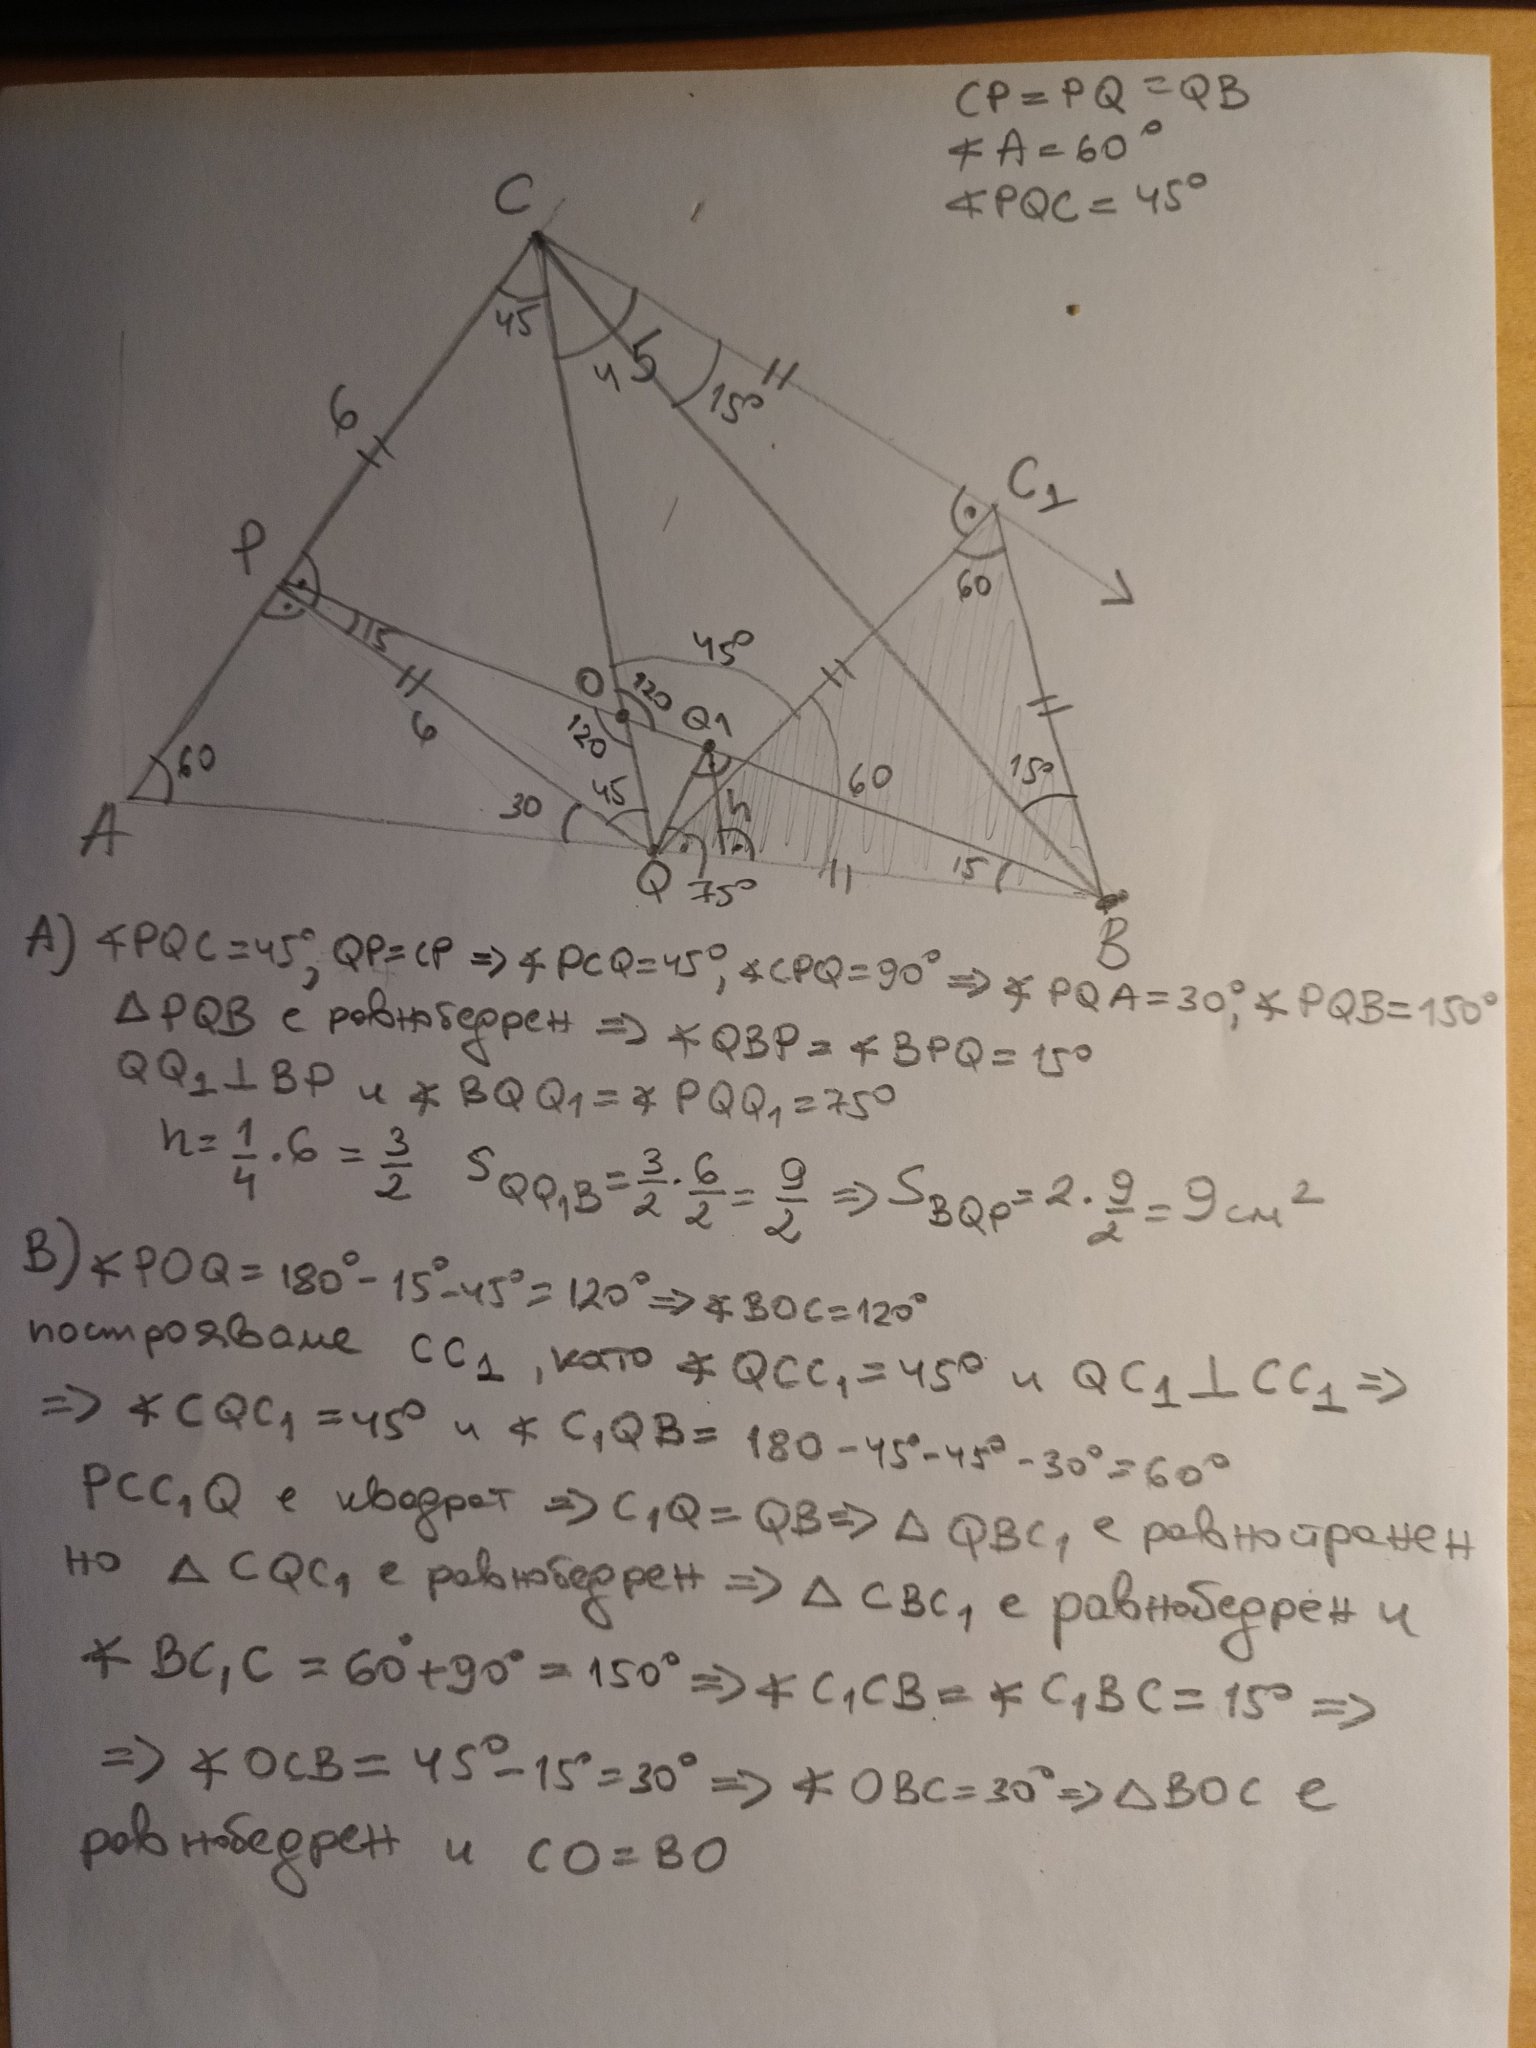 CP = PQ = QB
∢A = 60°
∢PQC = 45°
C
45
45
15°
6
C1
P
60
15
45°
O
120
Q1
120
6
h
60
15°
60
30
45
15
A
Q
75°
B
A) ∢PQC = 45°, QP = CP => ∢PCQ = 45°, ∢CPQ = 90° => ∢PQA = 30°, ∢PQB = 150°
△PQB е равнобедрен => ∢QBP = ∢BPQ = 15°
QQ1 ⊥ BP и ∢BQQ1 = ∢PQQ1 = 75°
h = 1/4 . 6 = 3/2 S QQ1B = 3/2 . 6/2 = 9/2 => S BQP = 2 . 9/2 = 9 см²
B) ∢POQ = 180° - 15° - 45° = 120° => ∢BOC = 120°
построяваме CC1, като ∢QCC1 = 45° и QC1 ⊥ CC1 =>
=> ∢CQC1 = 45° и ∢C1QB = 180 - 45° - 45° - 30° = 60°
PCC1Q е квадрат => C1Q = QB => △QBC1 е равностранен
но △CQC1 е равнобедрен => △CBC1 е равнобедрен и
∢BC1C = 60° + 90° = 150° => ∢C1CB = ∢C1BC = 15° =>
=> ∢OCB = 45° - 15° = 30° => ∢OBC = 30° => △BOC е
равнобедрен и CO = BO